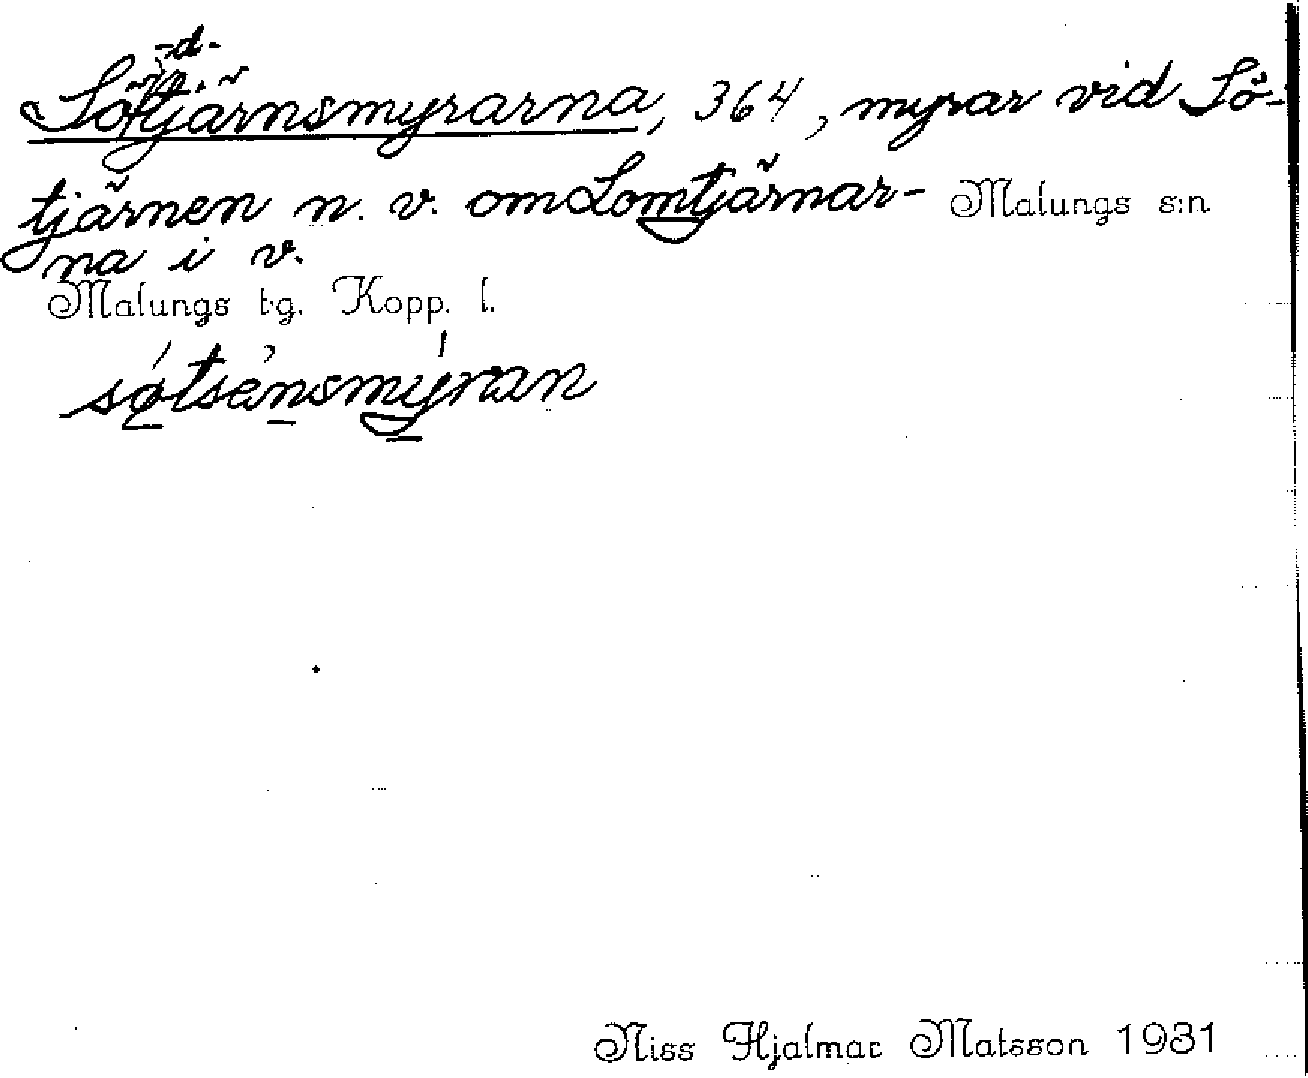 -d-
Sötjärnsmyrarna, 364, myrar vid Sö-
tjärnen n. v. om Lomtjärnar- Malungs s:n
na i v.
Malungs tg. Kopp. l.
sötsènsmýran
Niss Hjalmar Matsson 1931